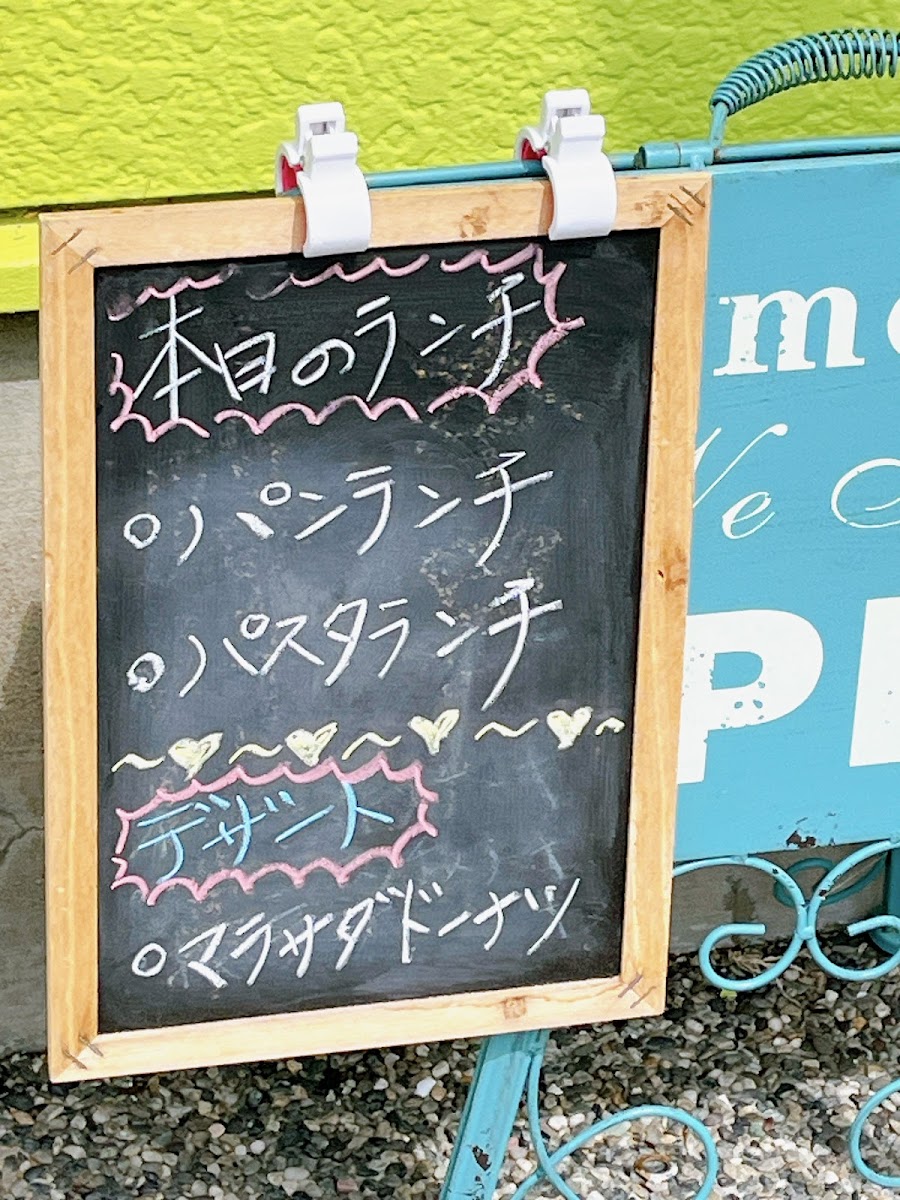 本日のランチ
○パンランチ
○パスタランチ
～♡～♡～♡～♡～
デザート
○マラサダドーナツ
me
We
P